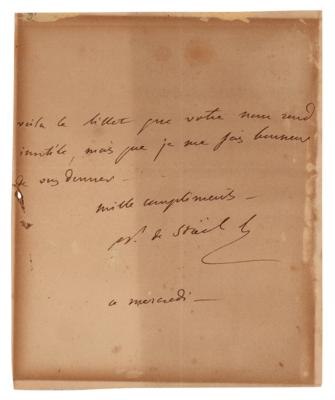 voila le billet que votre nom rend
inutile, mais que je me fais honneur
de vous donner —
mille compliments —
de Staël
ce mercredi —